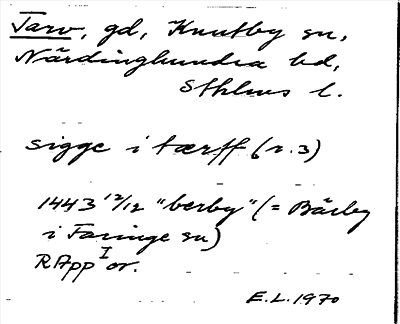 Tarv, gd, Knutby sn,
Närdinghundra hd,
Sthlms l.
sigge i tærff (r. 3)
1443 12/12 "berby" (= Bärby
i Faringe sn)
RApp I or.
E.L. 1970